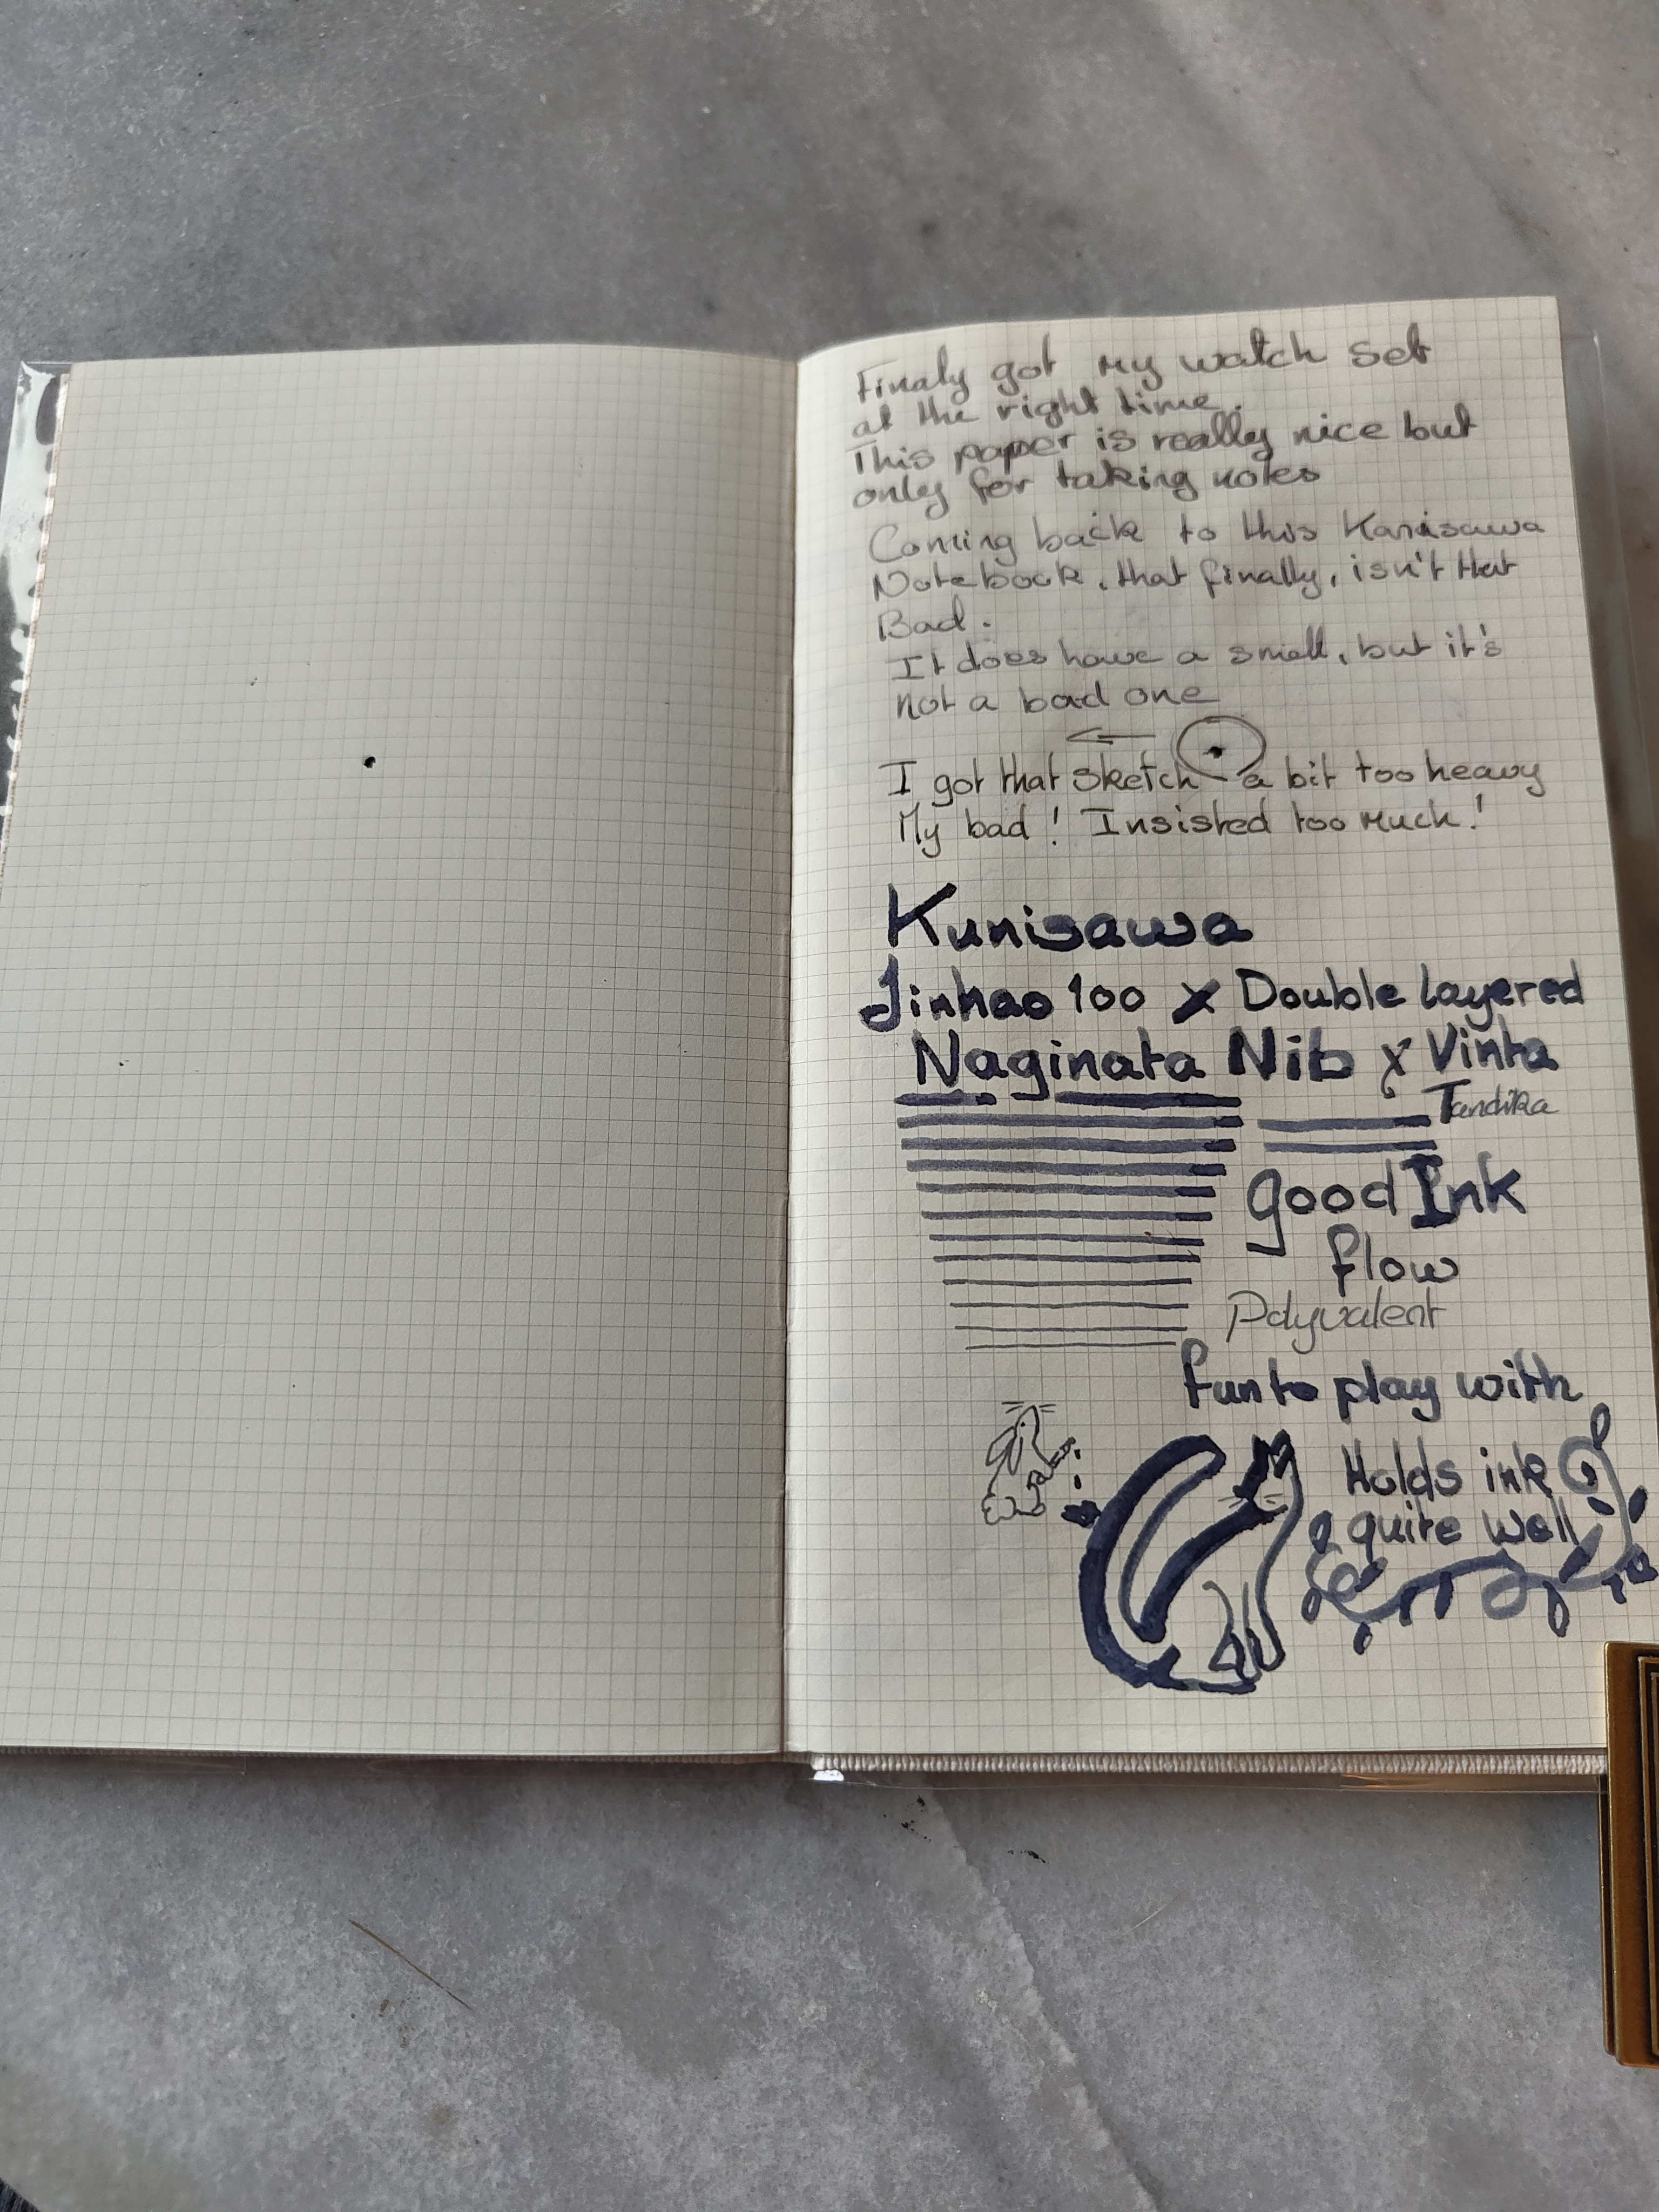 Finaly got my watch set
at the right time.
This paper is really nice but
only for taking notes
Coming back to this Kanisawa
Notebook, that finally, isn't that
Bad.
It does have a smell, but it's
not a bad one
I got that sketch a bit too heavy
My bad! Insisted too much!
Kunisawa
Jinhao 100 x Double layered
Naginata Nib x Vinta
Tandika
good Ink
flow
Polyvalent
fun to play with
Holds ink
quite well